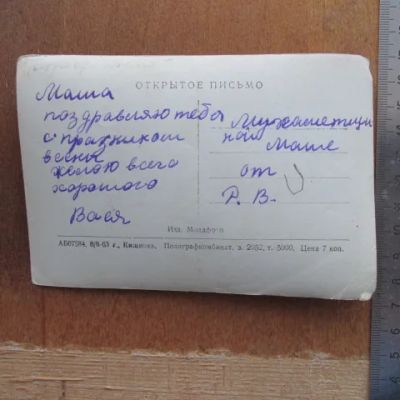 ОТКРЫТОЕ ПИСЬМО
Маша
поздравляю тебя
с празником
весны
желаю всего
хорошого
Вася
Мухаметщи
ной Маше
от
Р. В.
Изд. Молдфото
АБ07584, 8/II-63 г., Кишинев, Полиграфкомбинат, з. 2052, т. 5000, Цена 7 коп.